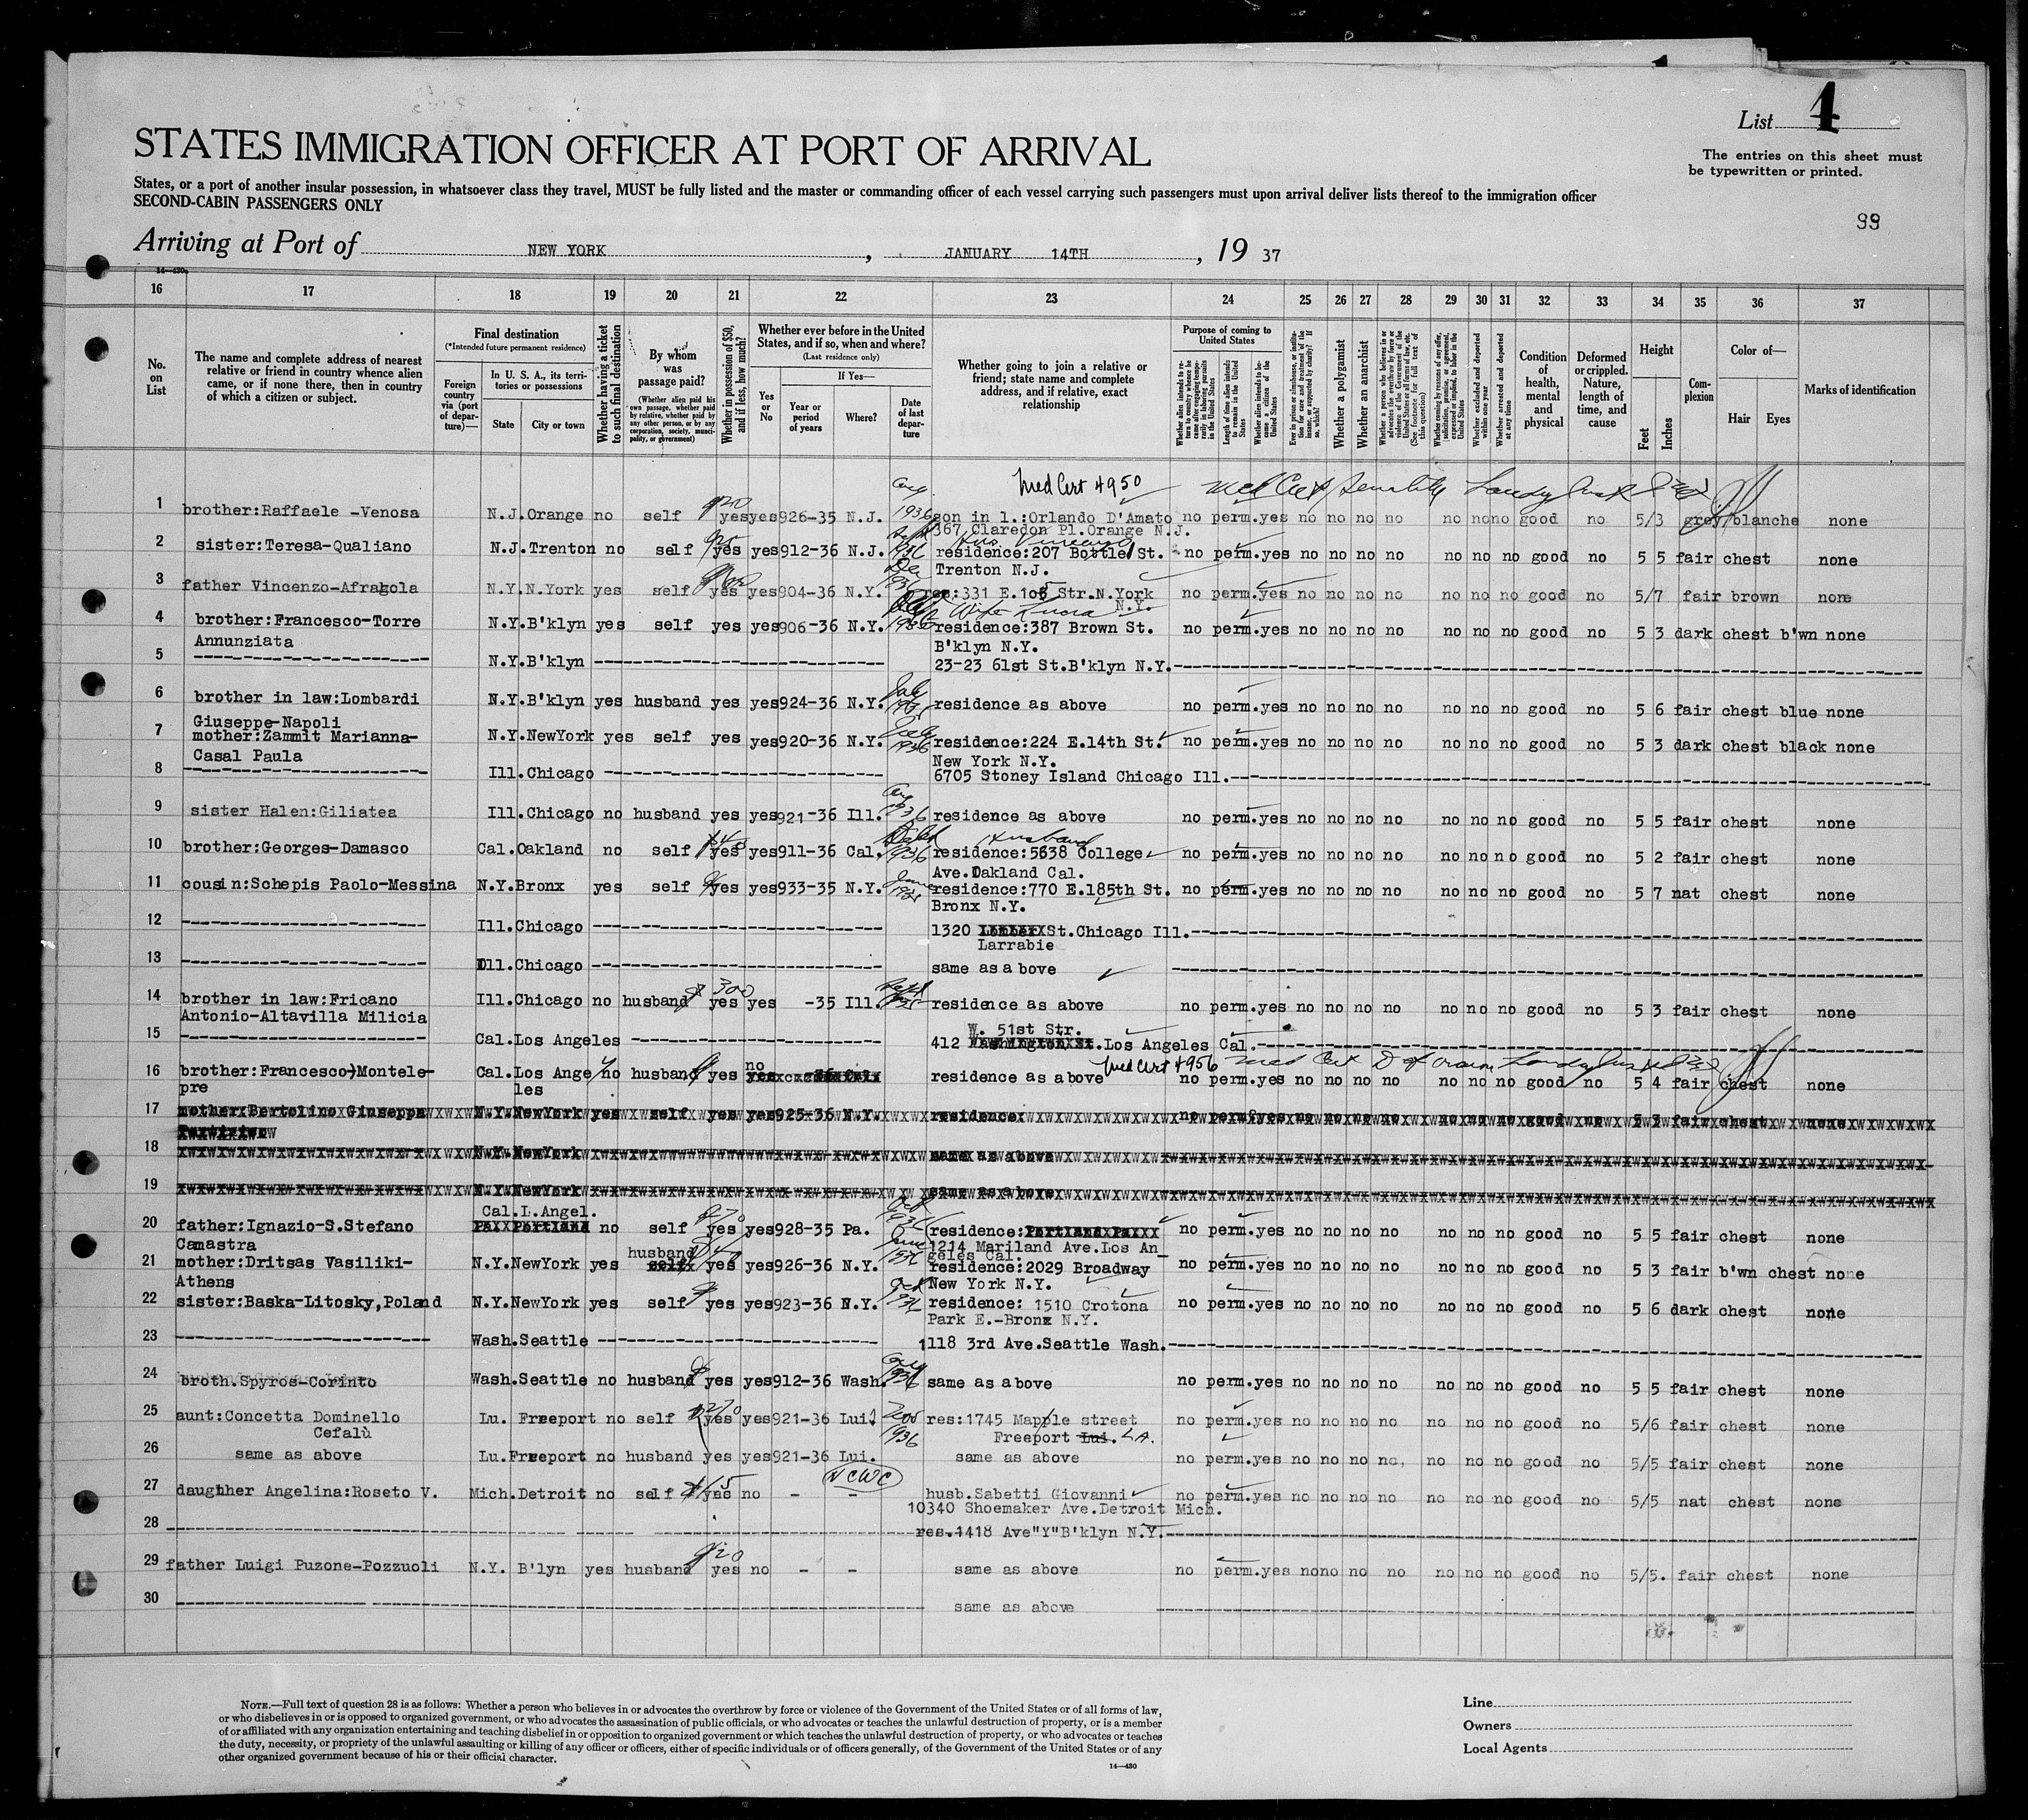 List 4
STATES IMMIGRATION OFFICER AT PORT OF ARRIVAL
The entries on this sheet must
be typewritten or printed.
States, or a port of another insular possession, in whatsoever class they travel, MUST be fully listed and the master or commanding officer of each vessel carrying such passengers must upon arrival deliver lists thereof to the immigration officer
SECOND-CABIN PASSENGERS ONLY
99
Arriving at Port of NEW YORK , JANUARY 14TH , 19 37
14—430
16 17 18 19 20 21 22 23 24 25 26 27 28 29 30 31 32 33 34 35 36 37
No. on List
The name and complete address of nearest relative or friend in country whence alien came, or if none there, then in country of which a citizen or subject.
Final destination
(*Intended future permanent residence)
Foreign country via (port of departure)—
In U. S. A., its territories or possessions
State City or town
Whether having a ticket to such final destination
By whom was passage paid?
(Whether alien paid his own passage, whether paid by relative, whether paid by any other person, or by any corporation, society, municipality, or government)
Whether in possession of $50, and if less, how much?
Whether ever before in the United States, and if so, when and where?
(Last residence only)
Yes or No
If Yes—
Year or period of years Where? Date of last departure
Whether going to join a relative or friend; state name and complete address, and if relative, exact relationship
Purpose of coming to United States
Whether alien intends to return to country whence he came after engaging temporarily in laboring pursuits in the United States
Length of time alien intends to remain in the United States
Whether alien intends to become a citizen of the United States
Ever in prison or almshouse, or institution for care and treatment of the insane, or supported by charity? If so, which?
Whether a polygamist
Whether an anarchist
Whether a person who believes in or advocates the overthrow by force or violence of the Government of the United States or all forms of law, etc. (See footnote for full text of this question)
Whether coming by reasons of any offer, solicitation, promise, or agreement, expressed or implied, to labor in the United States
Whether excluded and deported within one year
Whether arrested and deported at any time
Condition of health, mental and physical
Deformed or crippled. Nature, length of time, and cause
Height
Feet Inches
Complexion
Color of—
Hair Eyes
Marks of identification
Med Cert 4950 Med Cert Senility
1 brother:Raffaele -Venosa N.J. Orange no self yes yes 926-35 N.J. Aug. 1936 son in l.:Orlando D'Amato no perm. yes no no no no no no no good no 5/3 grey/blanche none
367 Claredon Pl.Orange N.J.
2 sister:Teresa-Qualiano N.J. Trenton no self yes yes 912-36 N.J. residence:207 Bottle St. no perm. yes no no no no no no no good no 5 5 fair chest none
Trenton N.J.
3 father Vincenzo-Afragola N.Y. N.York yes self yes yes 904-36 N.Y. res:331 E.105 Str.N.York no perm. yes no no no no no no no good no 5/7 fair brown none
N.Y.
4 brother:Francesco-Torre N.Y. B'klyn yes self yes yes 906-36 N.Y. residence:387 Brown St. no perm. yes no no no no no no no good no 5 3 dark chest b'wn none
Annunziata B'klyn N.Y.
5 N.Y. B'klyn 23-23 61st St.B'klyn N.Y.
6 brother in law:Lombardi N.Y. B'klyn yes husband yes yes 924-36 N.Y. residence as above no perm. yes no no no no no no no good no 5 6 fair chest blue none
Giuseppe-Napoli
7 mother:Zammit Marianna- N.Y. NewYork yes self yes yes 920-36 N.Y. 1936 residence:224 E.14th St. no perm. yes no no no no no no no good no 5 3 dark chest black none
Casal Paula New York N.Y.
8 Ill. Chicago 6705 Stoney Island Chicago Ill.
9 sister Halen:Giliatea Ill. Chicago no husband yes yes 921-36 Ill. Aug 1936 residence as above no perm. yes no no no no no no no good no 5 5 fair chest none
Husband
10 brother:Georges-Damasco Cal. Oakland no self yes yes 911-36 Cal. 1936 residence:5638 College no perm. yes no no no no no no no good no 5 2 fair chest none
Ave.Oakland Cal.
11 cousin:Schepis Paolo-Messina N.Y. Bronx yes self yes yes 933-35 N.Y. June residence:770 E.185th St. no perm. yes no no no no no no no good no 5 7 nat chest none
Bronx N.Y.
12 Ill. Chicago 1320 St.Chicago Ill.
Larrabie
13 Ill. Chicago same as above
14 brother in law:Fricano Ill. Chicago no husband $ 300 yes yes -35 Ill. Sept residence as above no perm. yes no no no no no no no good no 5 3 fair chest none
Antonio-Altavilla Milicia
W. 51st Str.
15 Cal. Los Angeles 412 Washington St. Los Angeles Cal.
Med Cert 4956 Med Cert
16 brother:Francesco-Montele- Cal. Los Ange no husband yes no residence as above no perm. yes no no no no no no no good no 5 4 fair chest none
pre les
17 mother:Bertolino Giuseppa N.Y. NewYork yes self yes yes 925-36 N.Y. residence no perm. yes no no no no no no no good no 5 3 fair chest none
18 N.Y. NewYork same as above
19 N.Y. NewYork same as above
Cal.L.Angel.
20 father:Ignazio-S.Stefano Pa. Portland no self yes yes 928-35 Pa. residence:Portland Pa. no perm. yes no no no no no no no good no 5 5 fair chest none
Camastra 1214 Mariland Ave.Los An-
husband geles Cal.
21 mother:Dritsas Vasiliki- N.Y. NewYork yes self yes yes 926-36 N.Y. June 1936 residence:2029 Broadway no perm. yes no no no no no no no good no 5 3 fair b'wn chest none
Athens New York N.Y.
22 sister:Baska-Litosky,Poland N.Y. NewYork yes self yes yes 923-36 N.Y. Oct 1936 residence: 1510 Crotona no perm. yes no no no no no no no good no 5 6 dark chest none
Park E.-Bronx N.Y.
23 Wash. Seattle 1118 3rd Ave.Seattle Wash.
24 broth.Spyros-Corinto Wash. Seattle no husband yes yes 912-36 Wash. Aug 1936 same as above no perm. yes no no no no no no no good no 5 5 fair chest none
25 aunt:Concetta Dominello Lu. Freeport no self yes yes 921-36 Lui. Nov 1936 res:1745 Mapple street no perm. yes no no no no no no no good no 5/6 fair chest none
Cefalù Freeport Lui. LA.
26 same as above Lu. Freeport no husband yes yes 921-36 Lui. same as above no perm. yes no no no no, no no no good no 5/5 fair chest none
NCWC
27 daughher Angelina:Roseto V. Mich. Detroit no self $15 yes no - - husb.Sabetti Giovanni no perm. yes no no no no no no no good no 5/5 nat chest none
10340 Shoemaker Ave.Detroit Mich.
28 res.1418 Ave"Y"B'klyn N.Y.
29 father Luigi Puzone-Pozzuoli N.Y. B'lyn yes husband $20 yes no - - same as above no perm. yes no no no no no no no good no 5/5. fair chest none
30 same as above
NOTE.—Full text of question 28 is as follows: Whether a person who believes in or advocates the overthrow by force or violence of the Government of the United States or of all forms of law,
or who disbelieves in or is opposed to organized government, or who advocates the assassination of public officials, or who advocates or teaches the unlawful destruction of property, or is a member
of or affiliated with any organization entertaining and teaching disbelief in or opposition to organized government or which teaches the unlawful destruction of property, or who advocates or teaches
the duty, necessity, or propriety of the unlawful assaulting or killing of any officer or officers, either of specific individuals or of officers generally, of the Government of the United States or of any
other organized government because of his or their official character.
14—430
Line
Owners
Local Agents